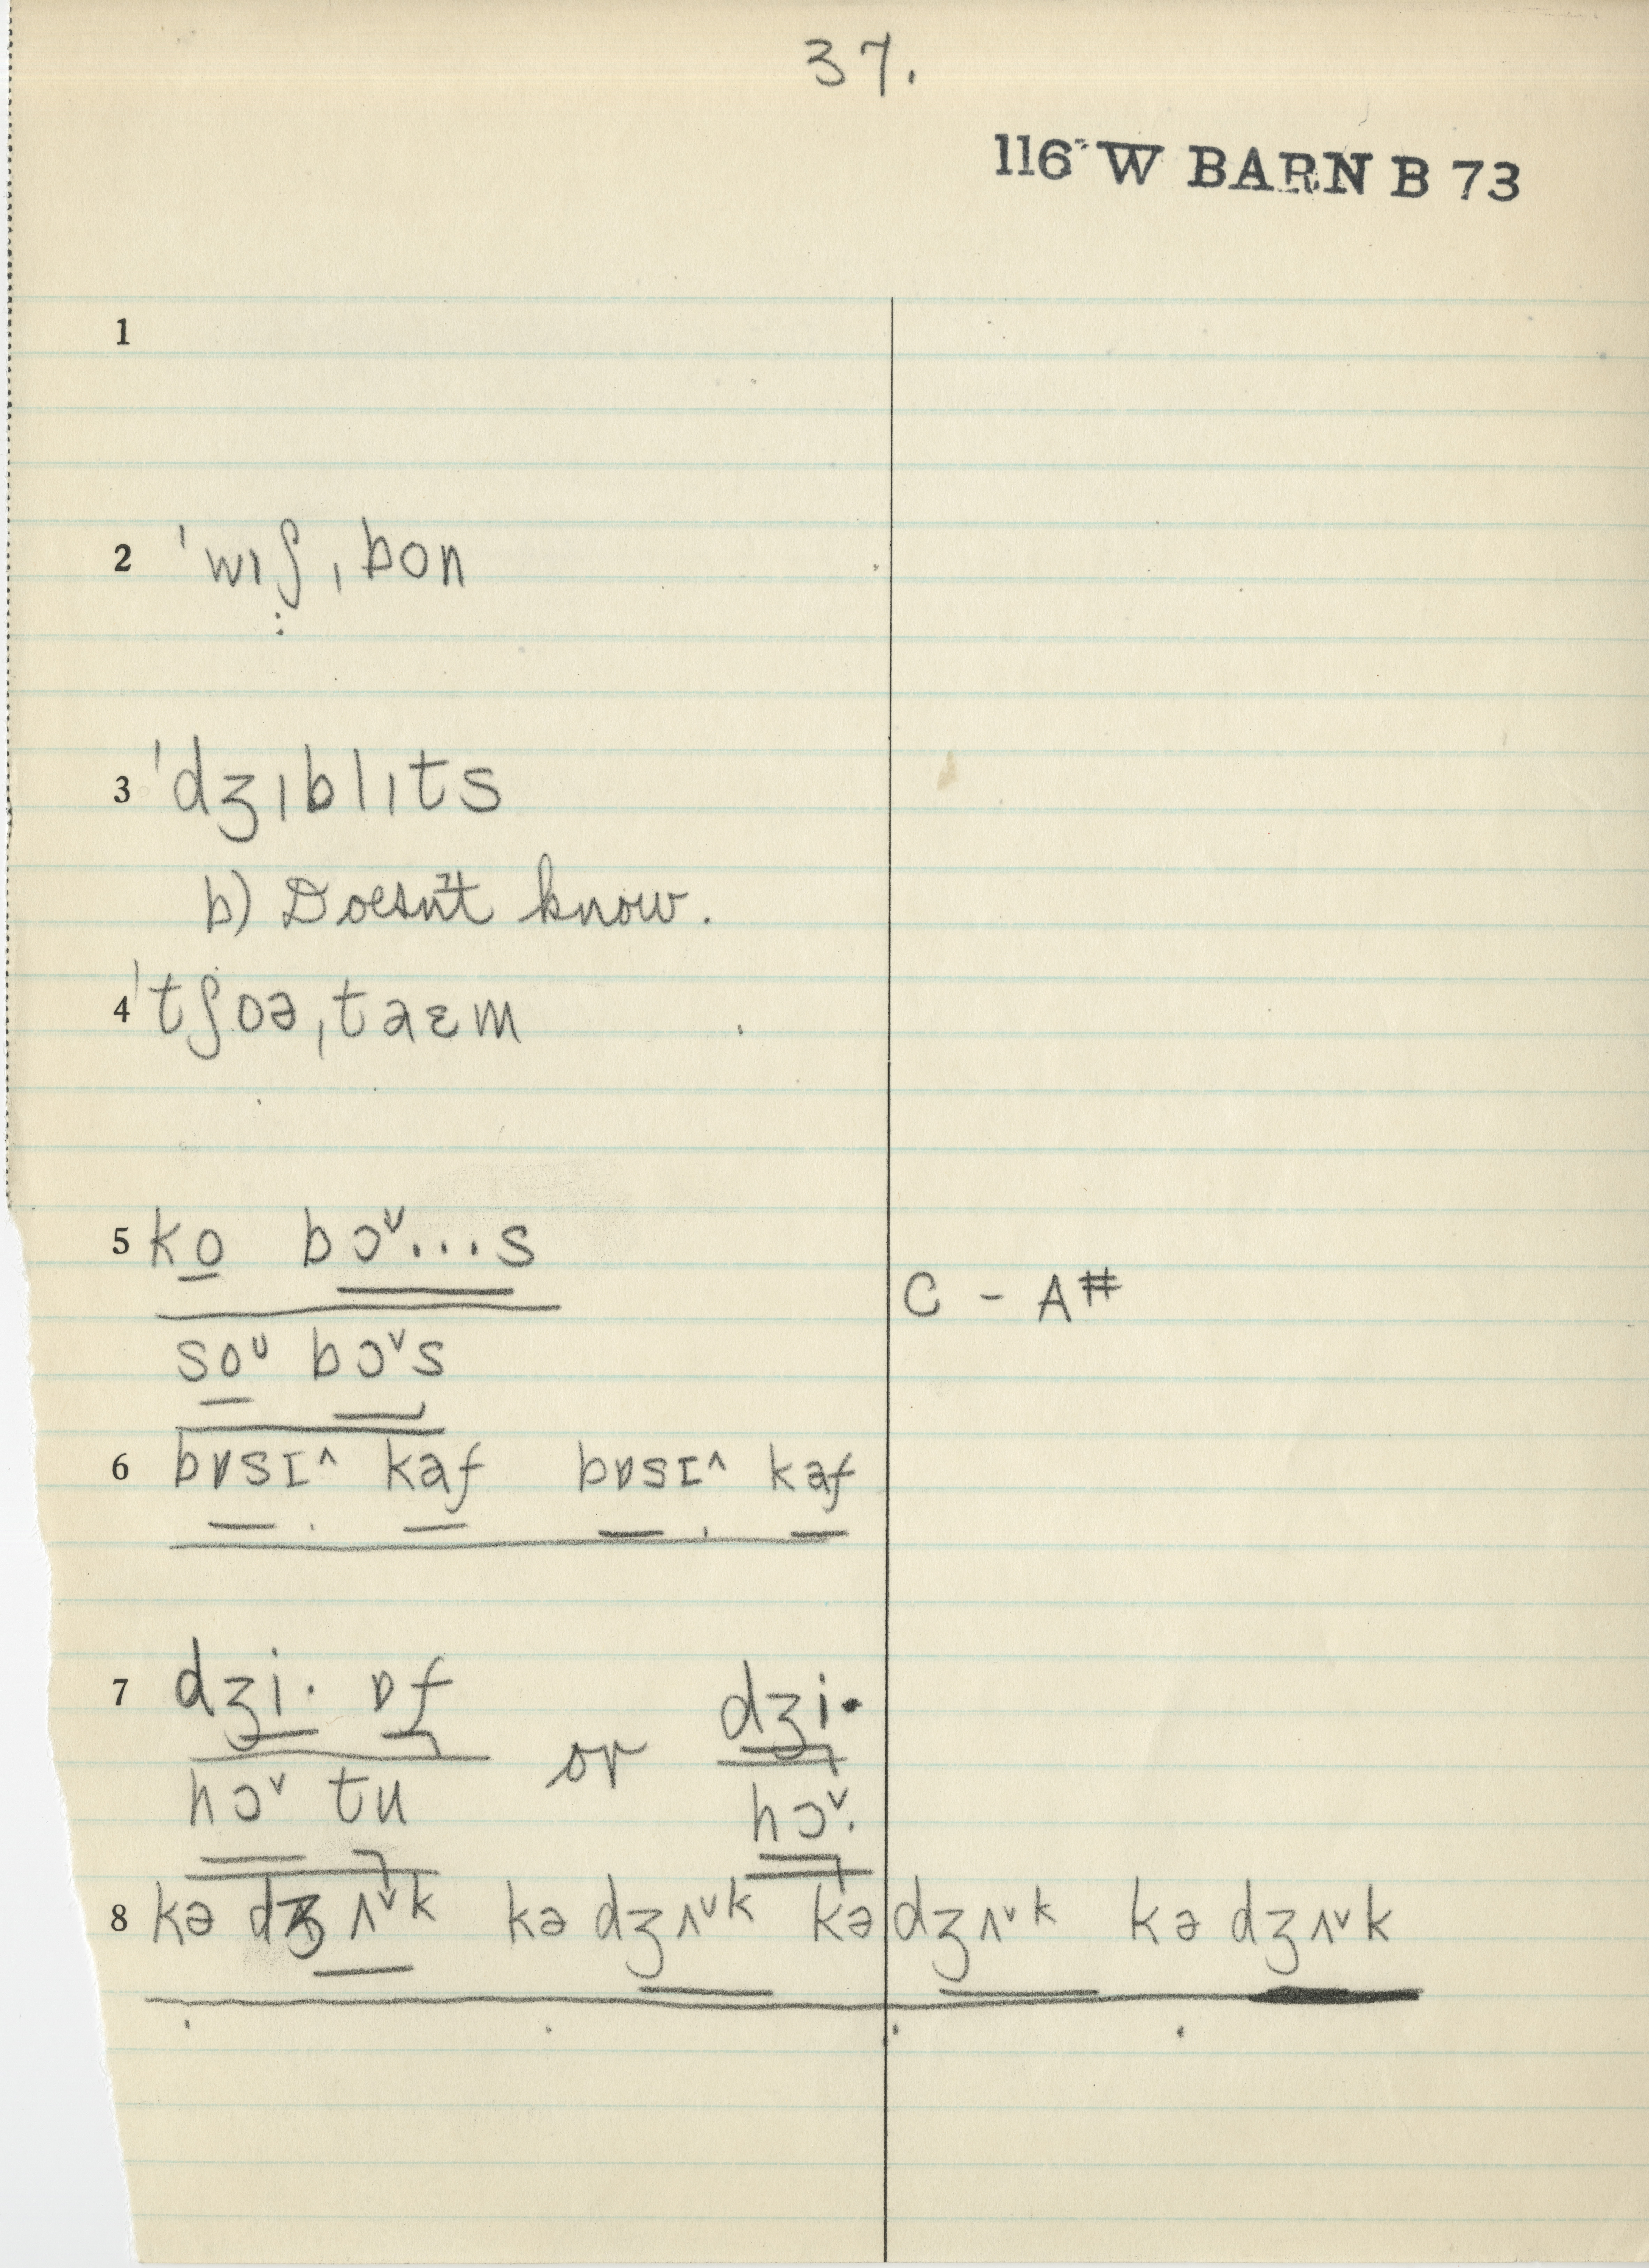 37.
116 W BARN B 73
1
2 ˈwɪʃˌbon
3 ˈdʒɪblɪts
b) Doesn't know.
4 ˈtʃoəˌtaɛm
5 ko bɔˇ...s
C - A#
soᴜ bɔˇs
6 bɒsɪ^ kaf bɒsɪ^ kaf
7 dʒi· ɒf or dʒi·
hɔˇ tu hɔˇ·
8 kə dʒʌˇk kə dʒʌˇk kə dʒʌˇk kə dʒʌˇk